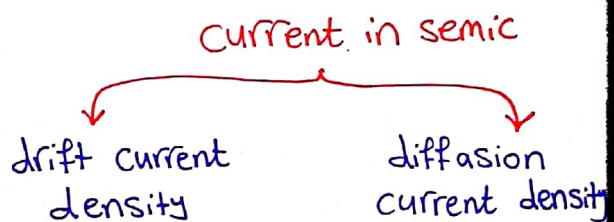 current in semic
drift current
density
diffasion
current density